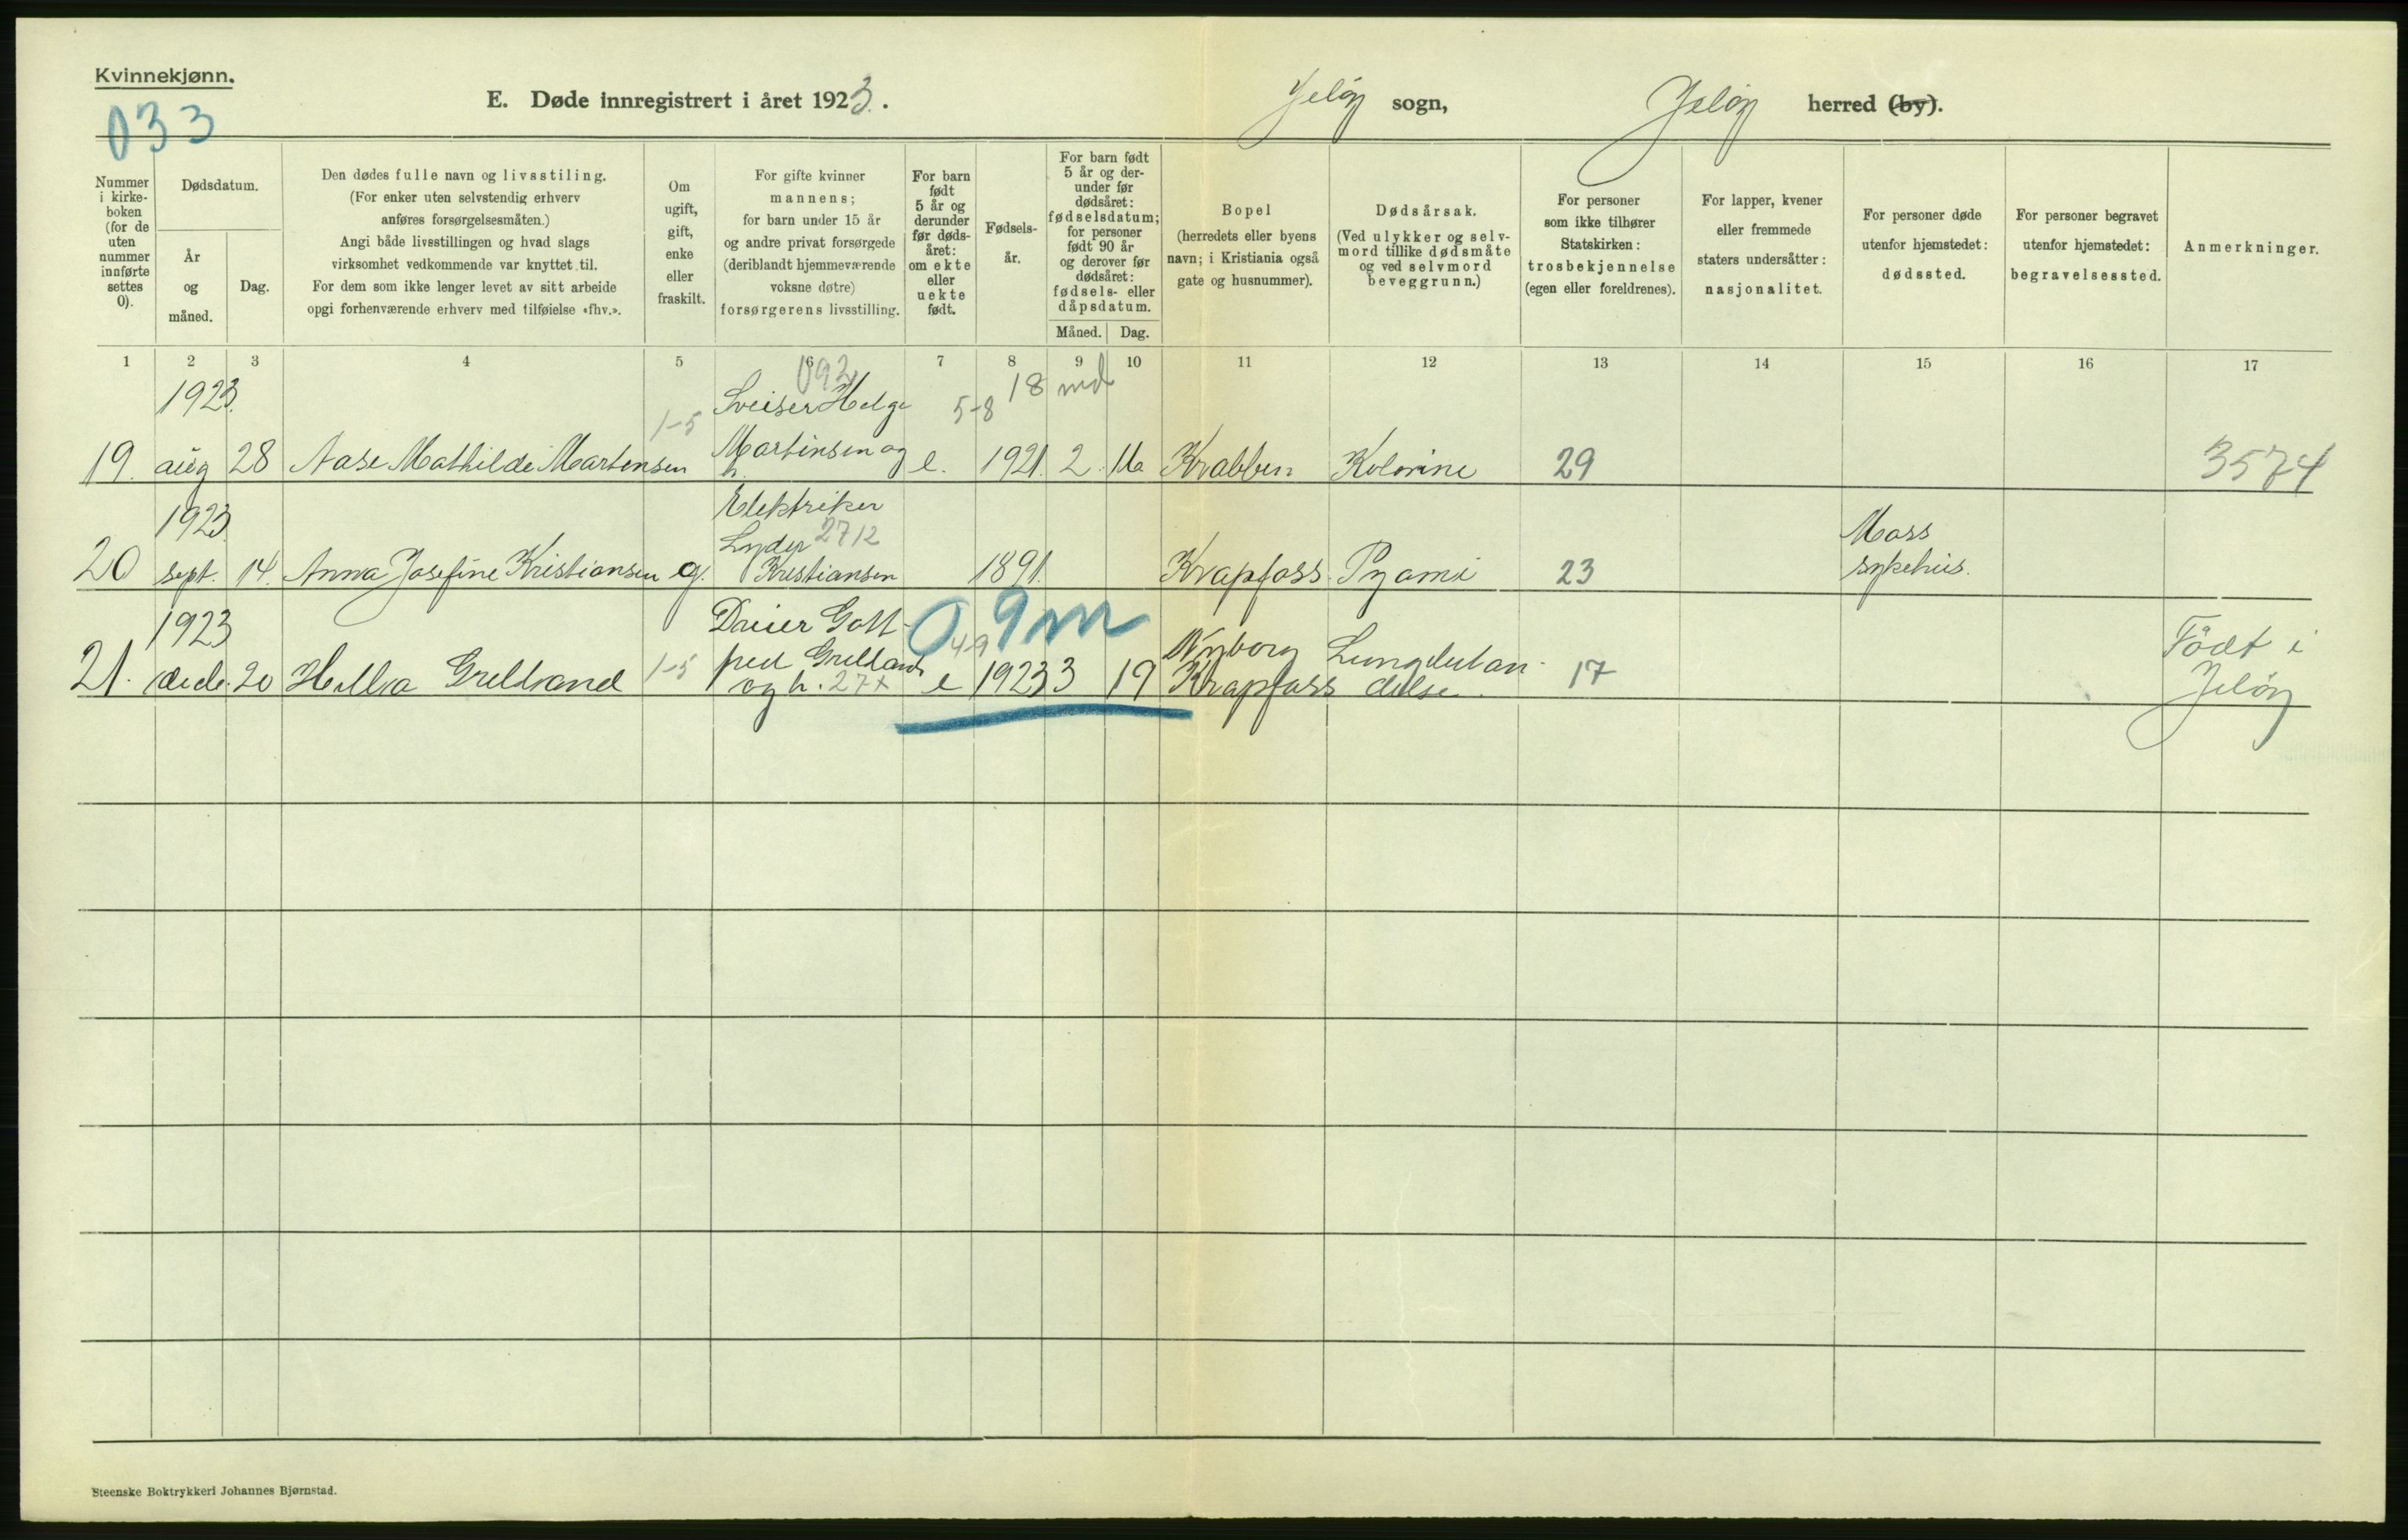 Kvinnekjønn.
033
E. Døde innregistrert i året 1923.
Jeløy sogn, Jeløy herred (by).
Nummer i kirke- boken (for de uten nummer innførte settes 0).
Dødsdatum.
År og måned.
Dag.
Den dødes fulle navn og livsstiling.
(For enker uten selvstendig erhverv
anføres forsørgelsesmåten.)
Angi både livsstillingen og hvad slags
virksomhet vedkommende var knyttet til.
For dem som ikke lenger levet av sitt arbeide
opgi forhenværende erhverv med tilføielse «fhv.».
Om ugift, gift, enke eller fraskilt.
For gifte kvinner
mannens;
for barn under 15 år
og andre privat forsørgede
(deriblandt hjemmeværende
voksne døtre)
forsørgerens livsstilling.
For barn født 5 år og derunder før døds- året: om ekte eller uekte født.
Fødsels- år.
For barn født
5 år og der-
under før
dødsåret:
fødselsdatum;
for personer
født 90 år
og derover før
dødsåret:
fødsels- eller
dåpsdatum.
Måned. Dag.
Bopel
(herredets eller byens
navn; i Kristiania også
gate og husnummer).
Dødsårsak.
(Ved ulykker og selv-
mord tillike dødsmåte
og ved selvmord
beveggrunn.)
For personer
som ikke tilhører
Statskirken:
trosbekjennelse
(egen eller foreldrenes).
For lapper, kvener
eller fremmede
staters undersåtter:
nasjonalitet.
For personer døde
utenfor hjemstedet:
dødssted.
For personer begravet
utenfor hjemstedet:
begravelsessted.
Anmerkninger.
1 2 3 4 5 6 7 8 9 10 11 12 13 14 15 16 17
092
1923. Sveiser Helge 5-8 18 md
1-5
19. aug 28 Aase Mathilde Martensen Martinsen og h. e. 1921. 2 16 Krabben Kolerine 29 3574
1923. Elektriker
Lyder 2712 Moss
20 sept. 14. Anna Josefine Kristiansen g. Kristiansen 1891. Krapfoss Pyami 23 sykehus.
1923 Dreier Gott- 0 9m
4-9 Nyborg Lungebetæn- Født i
21. decbr. 20 Hella Grelland 1-5 fred Grelland
og h. 27x e 1923 3 19 Krapfoss delse. 17 Jeløy
Steenske Boktrykkeri Johannes Bjørnstad.